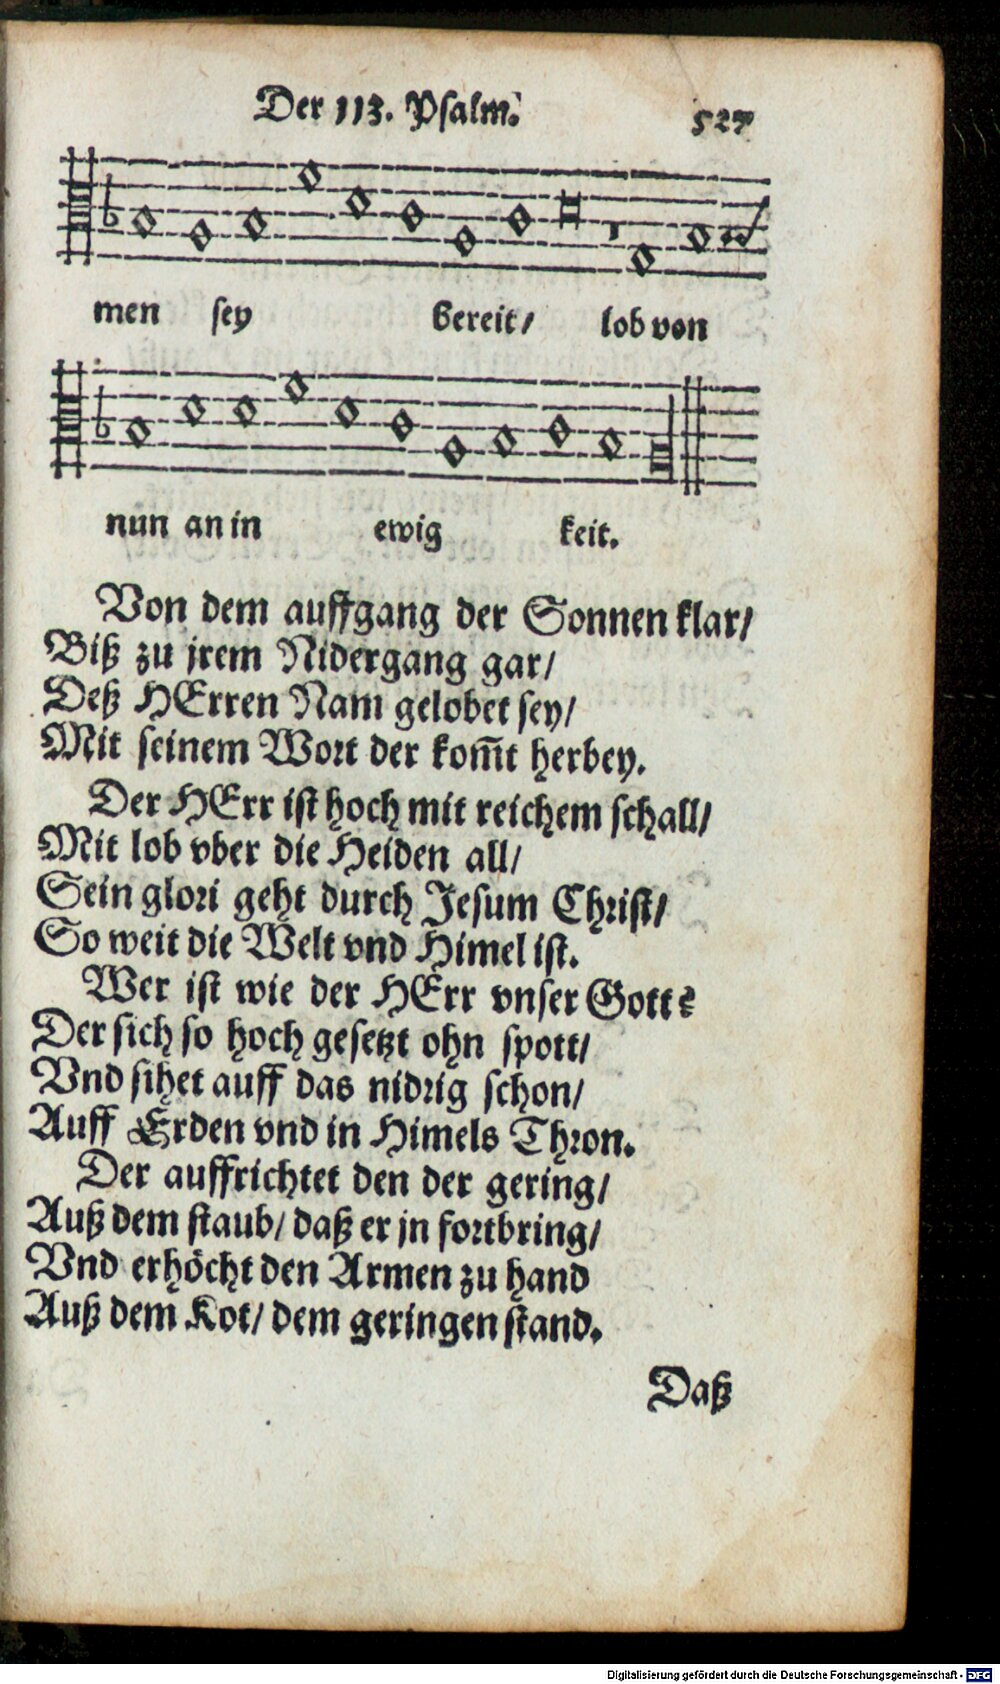 Der 113. Psalm.
527
men sey bereit/ lob von
nun an in ewig keit.
Von dem auffgang der Sonnen klar/
Biß zu jrem Nidergang gar/
Deß HErren Nam gelobet sey/
Mit seinem Wort der kom̃t herbey.
Der HErr ist hoch mit reichem schall/
Mit lob vber die Heiden all/
Sein glori geht durch Jesum Christ/
So weit die Welt vnd Himel ist.
Wer ist wie der HErr vnser Gott?
Der sich so hoch gesetzt ohn spott/
Vnd sihet auff das nidrig schon/
Auff Erden vnd in Himels Thron.
Der auffrichtet den der gering/
Auß dem staub/ daß er jn fortbring/
Vnd erhöcht den Armen zu hand
Auß dem Kot/ dem geringen stand.
Daß
Digitalisierung gefördert durch die Deutsche Forschungsgemeinschaft - DFG